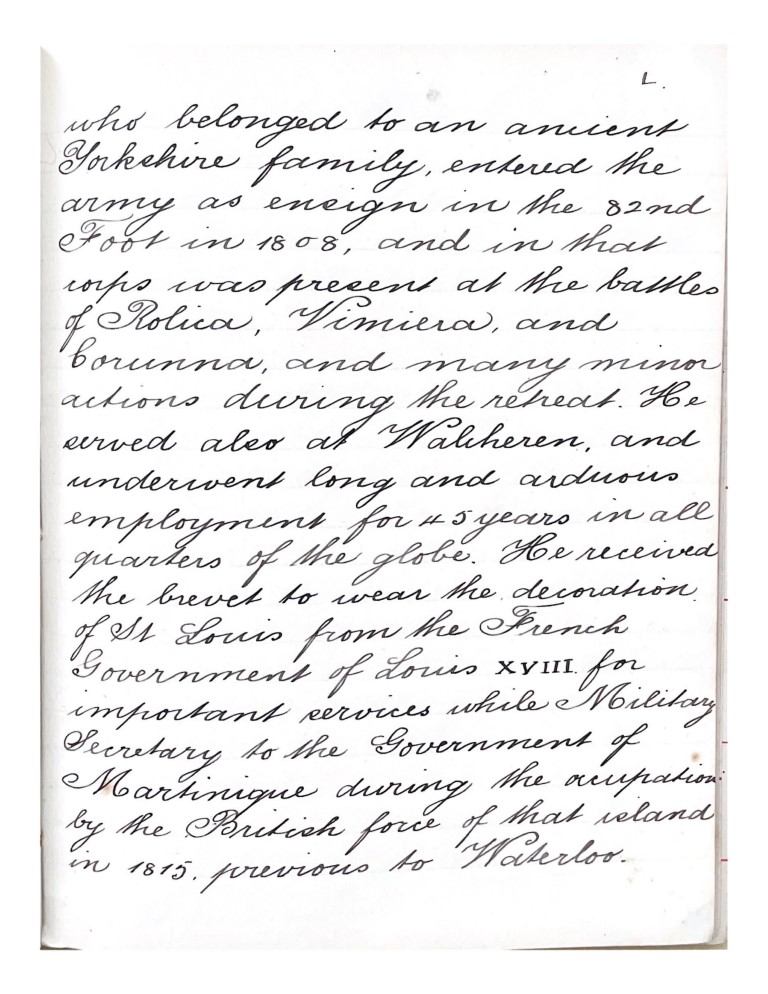 L.
who belonged to an ancient
Yorkshire family, entered the
army as ensign in the 82nd
Foot in 1808, and in that
corps was present at the battles
of Rolica, Vimiera, and
Corunna, and many minor
actions during the retreat. He
served also at Walcheren, and
underwent long and arduous
employment for 45 years in all
quarters of the globe. He received
the brevet to wear the decoration
of St Louis from the French
Government of Louis XVIII. for
important services while Military
Secretary to the Government of
Martinique during the ocupation
by the British force of that island
in 1815, previous to Waterloo.